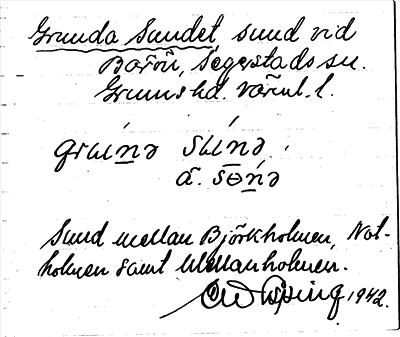 Grunda Sundet, sund vid
Barön, Segerstads sn.
Grums hd. Värml. l.
grúnə súnə.
å. sɵ́nə
Sund mellan Björkholmen, Not-
holmen samt Mellanholmen.
1942.